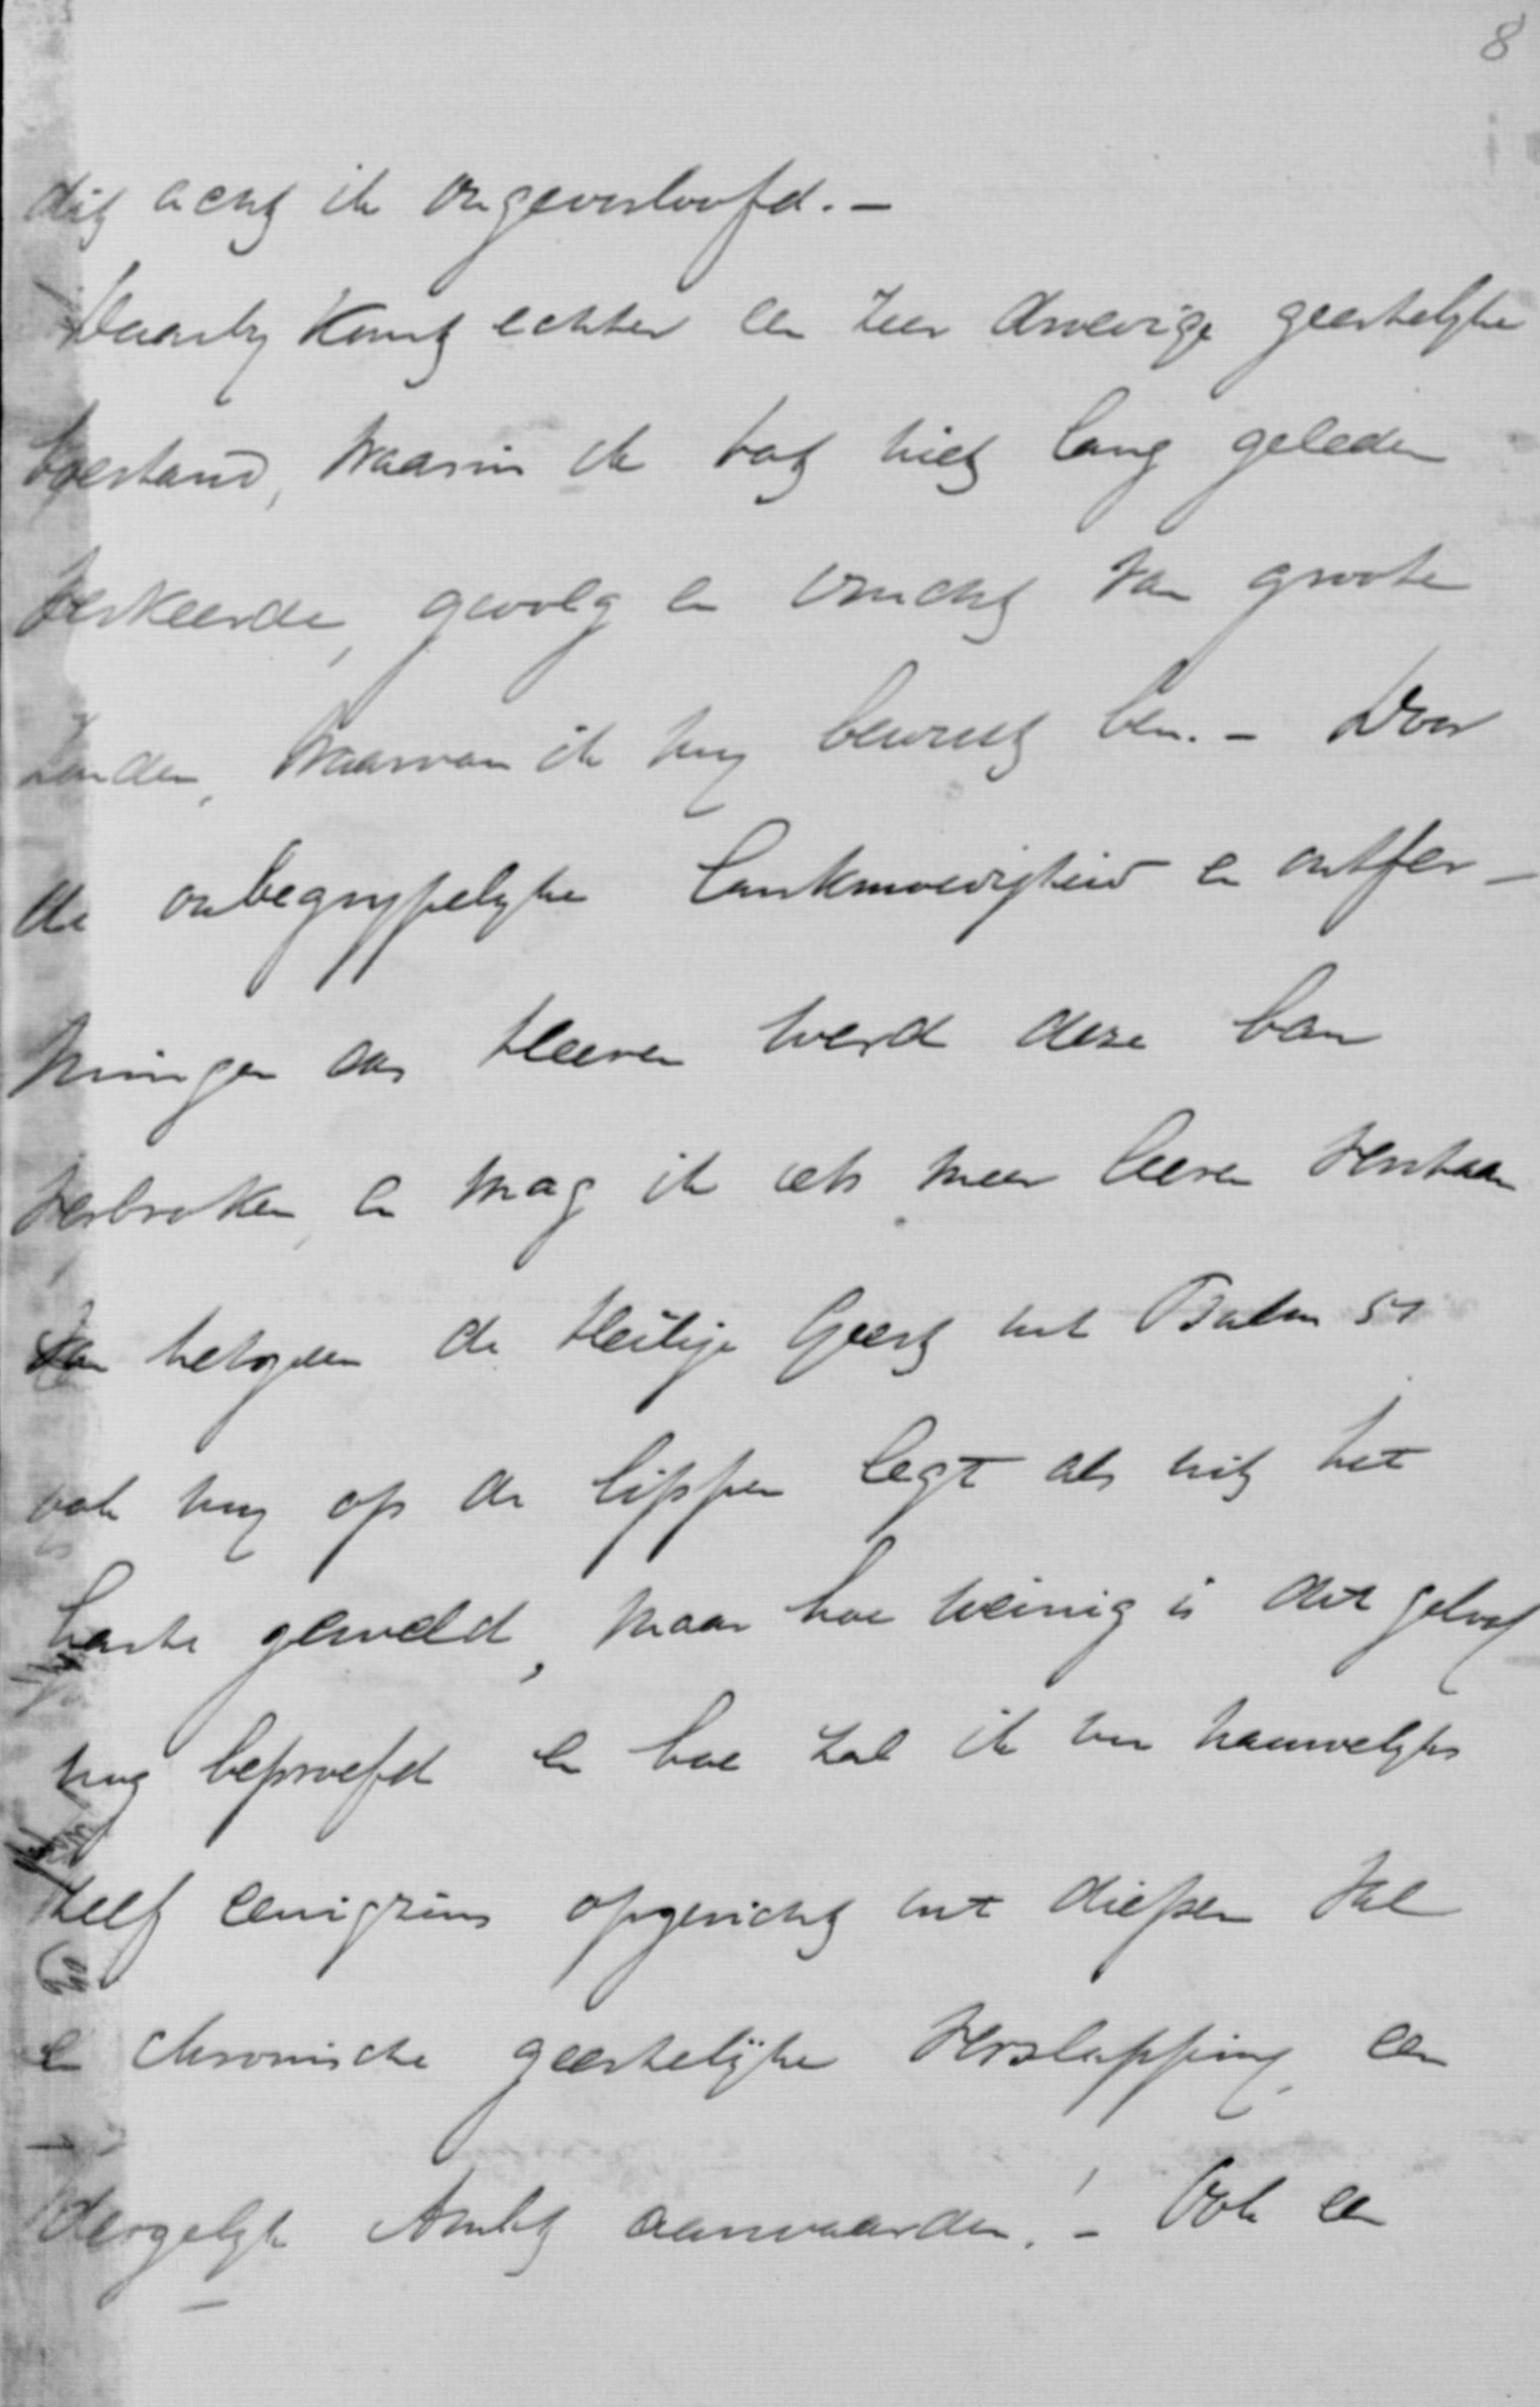 8
dit acht ik ongeoorloofd. -
Daarby komt echter een zeer droevige geestelyke
toestand, waarin ik tot niet lang geleden
verkeerde, gevolg en vrucht van groote
zonden, waarvan ik my bewust ben. - Door
de onbegrypelyke lankmoedigheid en ontfer-
mingen des Heeren werd deze ban
verbroken, en mag ik iets meer leeren verstaan
van hetgeen de Heilige Geest in Psalm 51
ook my op de lippen legt als uit het
harte geweld, maar hoe weinig is dit geloof
nog beproefd en hoe zal ik nu nauwelyks
zelf eenigzins opgericht uit diepen val
en chronische geestelijke verslapping, een
dergelyk Ambt aanvaarden! - Ook een